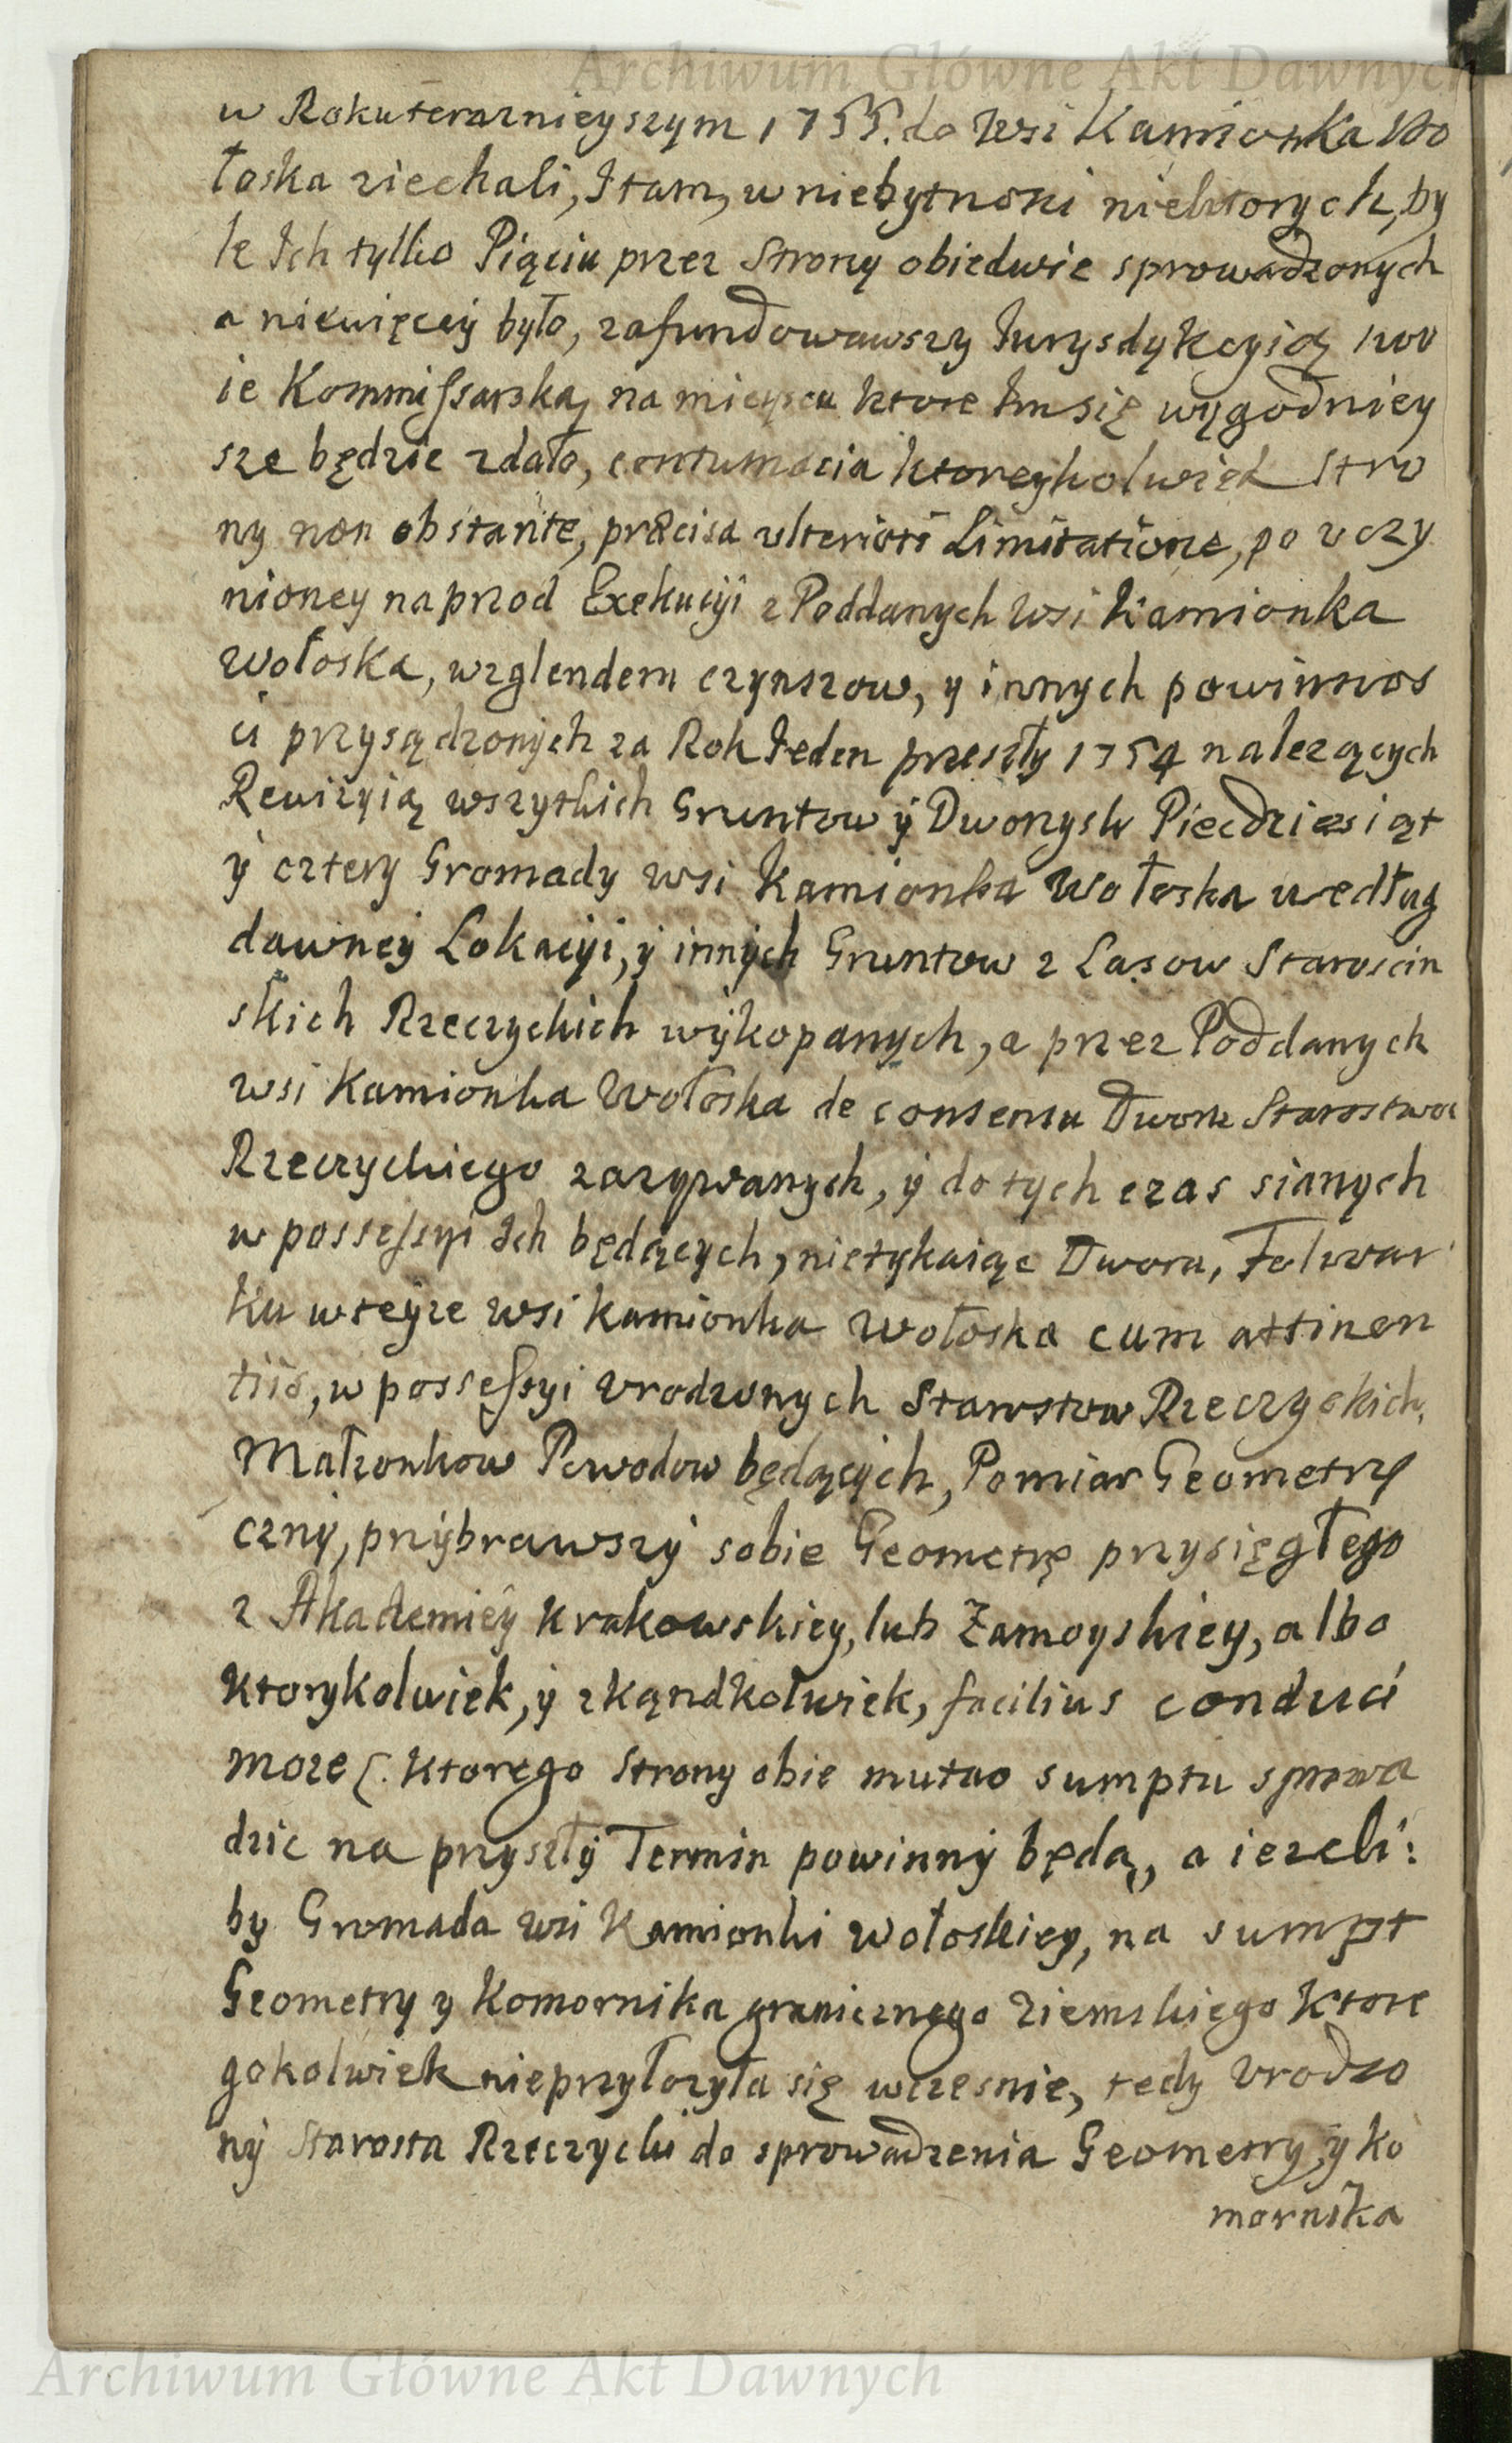 Archiwum Główne Akt Dawnych
w Roku teraznieyszym 1755. do wsi Kamionka Wo
łoska ziechali, Itam, w niebytnosci niektorych, by
le Ich tylko Pięciu przez Strony obiedwie sprowadzonych
a niewięcey było, zafundowawszy Iurysdykcyią swo
ie Kommissarską, na mieyscu ktore Im się wygodniey
sze będzie zdało, contumacia ktoreykolwiek Stro
ny non obstante, præcisa ulteriori Limitatione, po uczy
nioney naprzod Exekucyi z Poddanych wsi Kamionka
Wołoska, wzglendem czynszow, y innych powinnos
ci przysądzonych za Rok Ieden przeszły 1754 nalezących
Rewizyią wszytkich Gruntow y Dworzysk Piecdziesiąt
y cztery Gromady wsi Kamionka Wołoska według
dawney Lokacyi, y innych Gruntow z Lasow Staroscin
skich Rzeczyckich wykopanych, a przez Poddanych
wsi Kamionka Wołoska de consensu Dworu Starostwa
Rzeczyckiego zazywanych, y do tych czas sianych
w possessyi Ich będących, nietykaiąc Dwora, Folwar
ku w teyze wsi Kamionka Wołoska cum attinen
tiis, w possessyi Urodzonych Starostow Rzeczyckich,
Małzonkow Powodow będących, Pomiar Geometry
czny, przybrawszy sobie Geometrę przysięgłego
z Akademiey Krakowskiey, lub Zamoyskiey, albo
ktorykolwiek, y zkąndkolwiek, facilius conduci
moze (. ktorego Strony obie mutuo sumptu sprowa
dzic na przyszły Termin powinny będą, a iezeli:
by Gromada wsi Kamionki Wołoskiey, na sumpt
Geometry y Komornika granicznego Ziemskiego ktore
gokolwiek nieprzyłozyła się wczesnie, tedy Urodzo
ny Starosta Rzeczycki do sprowadzenia Geometry, y ko
mornika
Archiwum Główne Akt Dawnych